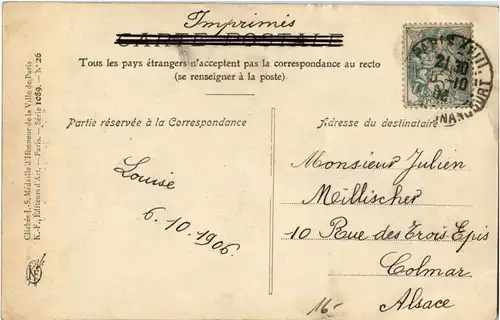 Imprimés
CARTE POSTALE
Tous les pays étrangers n'acceptent pas la correspondance au recto
(se renseigner à la poste)
Partie réservée à la Correspondance
Adresse du destinataire
Louise
6.10.1906.
Monsieur Julien
Millischer
10 Rue des Trois Epis
Colmar
Alsace
16-
Clichés L.-S. Médaille d'Honneur de la Ville de Paris
K.-F., Éditeurs d'Art. — Paris. — Série 1089. — N° 26
PARIS XVIII
21 10
5-10